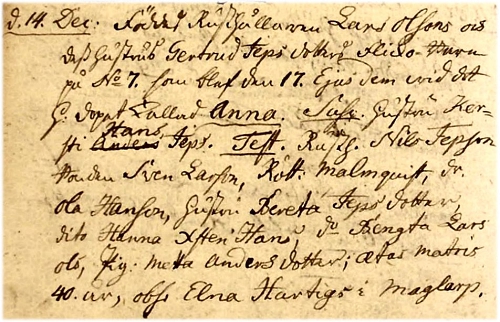 d. 14. Dec. Föddes Rusthållaren Lars Olssons och
dess hustrus Gertrud Jeps dotters flicko barn
på No 7. som blef den 17. Ejusdem wid det
H. dopet kallad Anna. Susc. hustru Ker-
sti Anders Hans Jeps. Test. Rusth. Nils Jepson
bonden Sven Larson, Rött: Malmquist, dr.
ola Hanson, hustru Bereta Jeps dotter,
dito Hanna Hans, do Bengta Lars
ols, pig: Meta Anders dotter; ætas matris
40. år, obst Elna Hartigs i Maglarp.